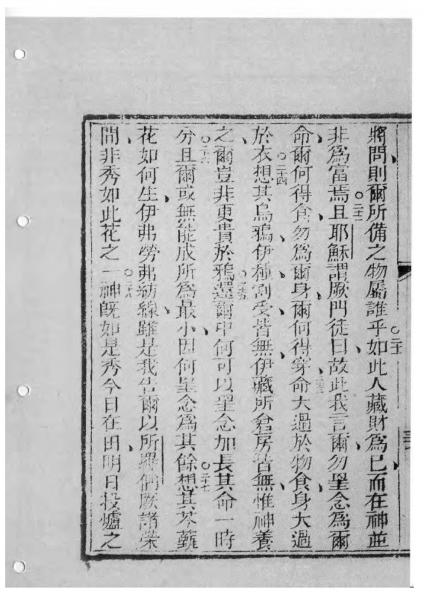 將問則爾所備之物屬誰乎如此人藏財為己而在神並
非為富焉且耶穌謂厥門徒曰故此我言爾勿罣念為爾
命爾何得食勿為爾身爾何得穿命大過於物食身大過
於衣想其烏鴉伊種割受皆無伊藏所倉房皆無惟神養
之爾豈非更貴於鴉還爾中何可以罣念加長其命一時
分且爾或無能成所為最小因何罣念為其餘想其
花如何生伊弗勞弗紡線雖是我告爾以所羅們厥諸榮
間非秀如此花之一神既如是秀今日在田明日投爐之